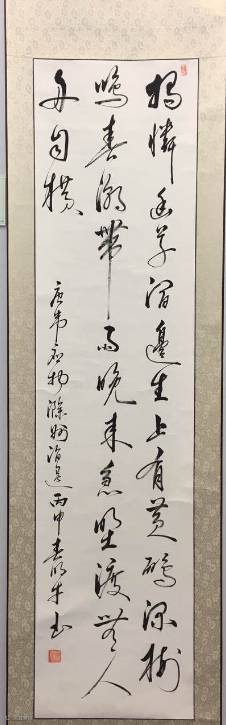 獨憐幽草澗邊生上有黄鸝深樹
鳴春潮帶雨晚來急野渡無人
舟自横
唐韦应物滁州涧边丙申春书